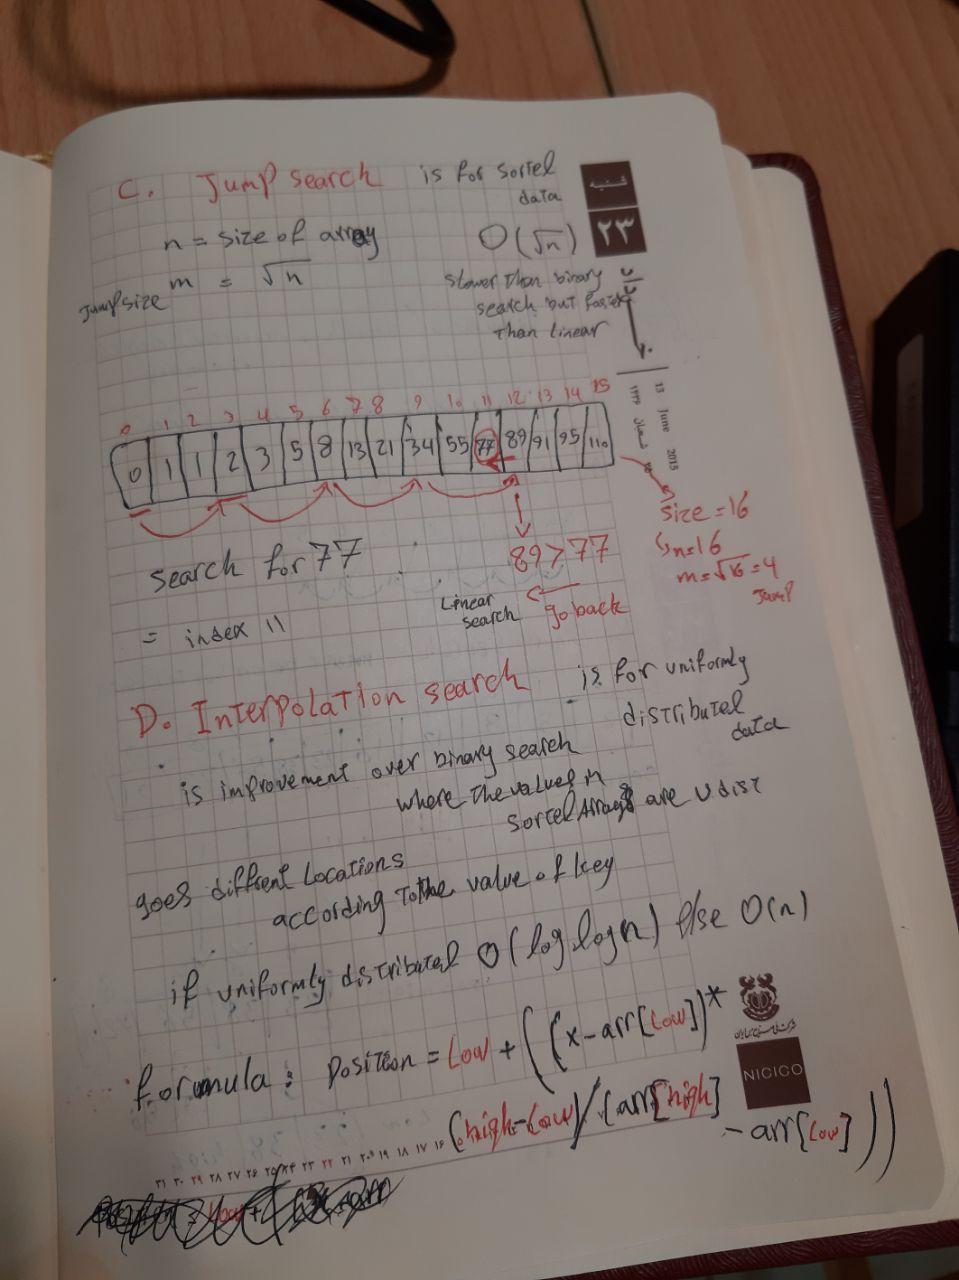 C. Jump search is for sorted data
شنبه
۲۳
n = size of array
O(√n)
Jump size m = √n
slower than binary
search but faster
than linear
13 June 2015
0 1 2 3 4 5 6 7 8 9 10 11 12 13 14 15
0 1 1 2 3 5 8 13 21 34 55 77 89 91 95 110
size = 16
n=16
m=√16=4
Jump
search for 77
89>77
Linear search
go back
= index 11
D. Interpolation search is for uniformly
distributed
data
is improvement over binary search
where the values in
sorted Arrays are U dist
goes diffrent Locations
according to the value of key
if uniformly distributed O(log log n) else O(n)
formula: Position = Low + ((x-arr[Low])*
(high-Low)/(arr[high]
-arr[Low]))
NICICO
۳۱ ۳۰ ۲۹ ۲۸ ۲۷ ۲۶ ۲۵ ۲۴ ۲۳ ۲۲ ۲۱ ۲۰ ۱۹ ۱۸ ۱۷ ۱۶